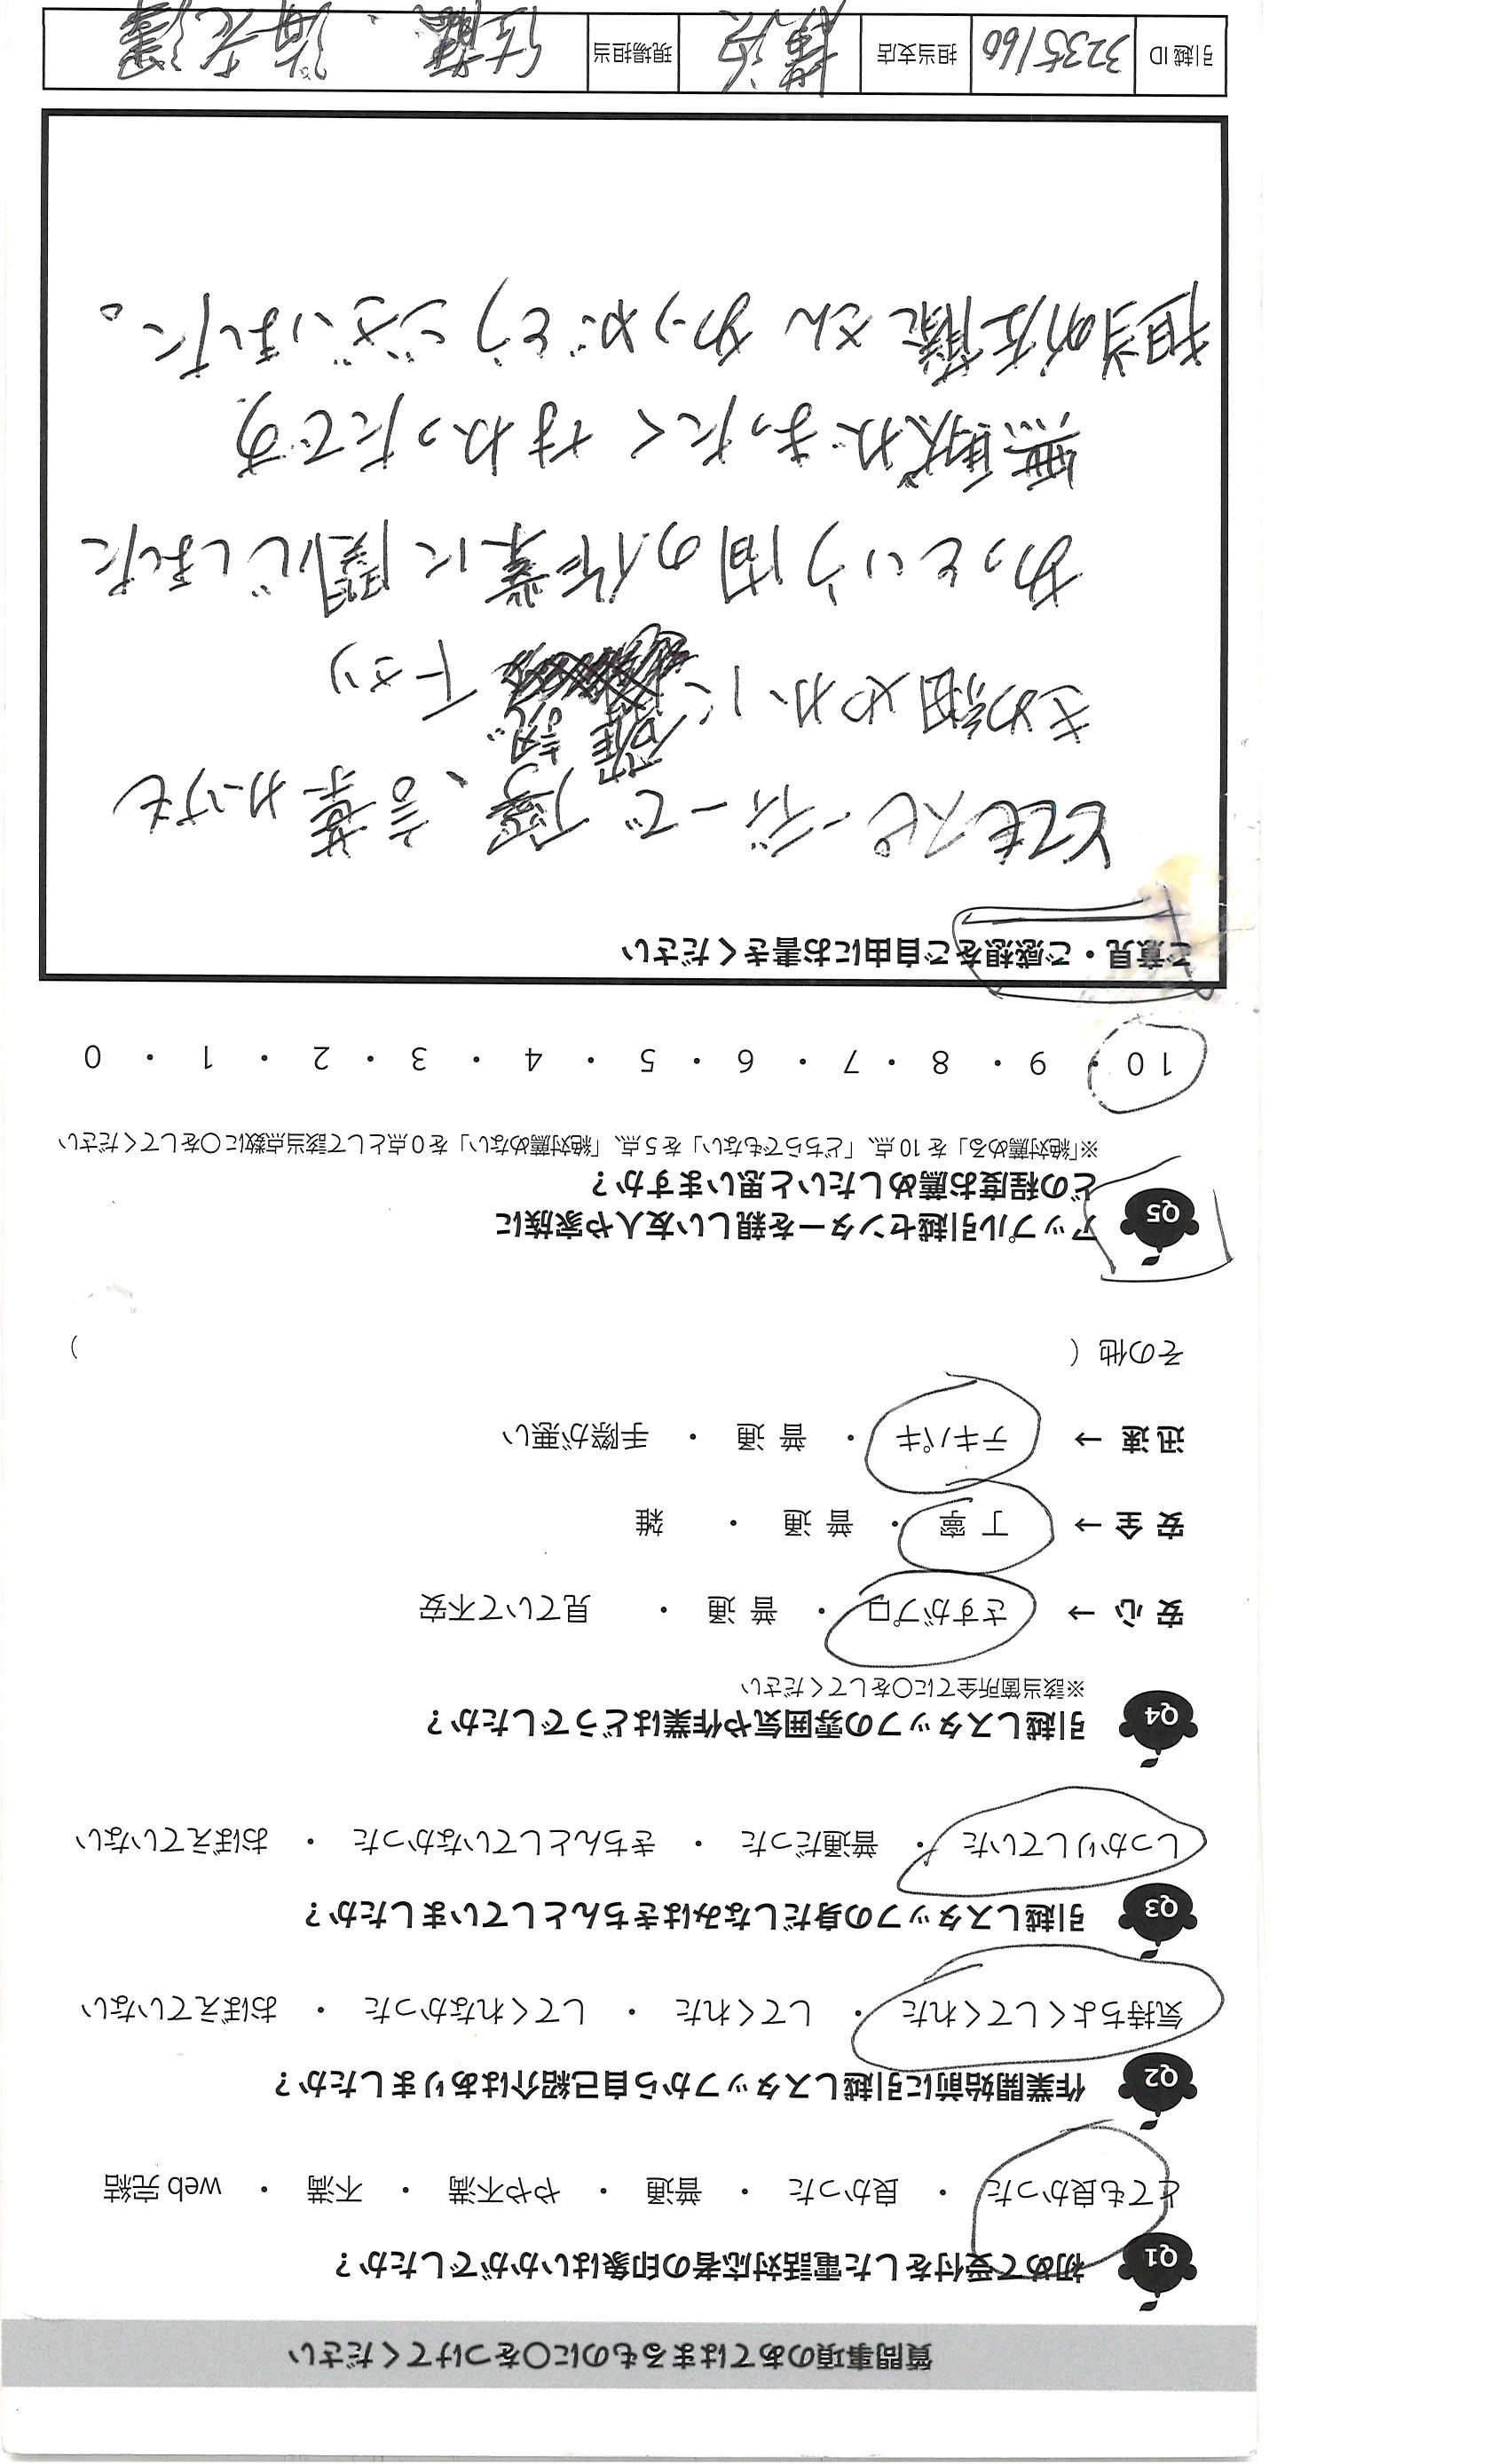 質問事項のあてはまるものに〇をつけてください
Q1 初めて受付をした電話対応者の印象はいかがでしたか？
とても良かった ・ 良かった ・ 普通 ・ やや不満 ・ 不満 ・ web 完結
Q2 作業開始前に引越しスタッフから自己紹介はありましたか？
気持ちよくしてくれた ・ してくれた ・ してくれなかった ・ おぼえていない
Q3 引越しスタッフの身だしなみはきちんとしていましたか？
しっかりしていた ・ 普通だった ・ きちんとしていなかった ・ おぼえていない
Q4 引越しスタッフの雰囲気や作業はどうでしたか？
※該当箇所全てに〇をしてください
安 心 → さすがプロ ・ 普 通 ・ 見ていて不安
安 全 → 丁 寧 ・ 普 通 ・ 雑
迅 速 → テキパキ ・ 普 通 ・ 手際が悪い
その他（ ）
Q5 アップル引越センターを親しい友人や家族に
どの程度お薦めしたいと思いますか？
※「絶対薦める」を 10 点、「どちらでもない」を 5 点、「絶対薦めない」を 0 点として該当点数に〇をしてください
10 ・ 9 ・ 8 ・ 7 ・ 6 ・ 5 ・ 4 ・ 3 ・ 2 ・ 1 ・ 0
ご意見・ご感想をご自由にお書きください
とてもスピーディーで 、言葉かけも
確認
きめ細やかに 下さり
あっという間の作業に感じました
無駄がまったくなかったです
担当の佐藤さん ありがとうございました。
引越 ID 3235160 担当支店 横浜 現場担当 佐藤、海老澤